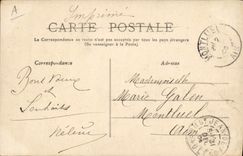 A
Imprimé
CARTE POSTALE
La Correspondance au recto n'est pas acceptée par tous les pays étrangers
(Se renseigner à la Poste)
MONTLUEL
Correspondance
Adresse
Bons Vœux
et
Souhaits
Hélène
Mademoiselle
Marie Galon
Montluel
Ain